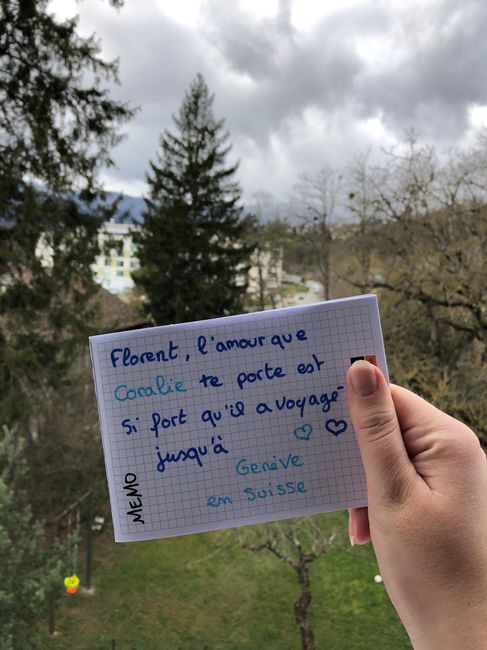 Florent, l'amour que
Coralie te porte est
si fort qu'il a voyagé
jusqu'à
Genève
en Suisse
MEMO